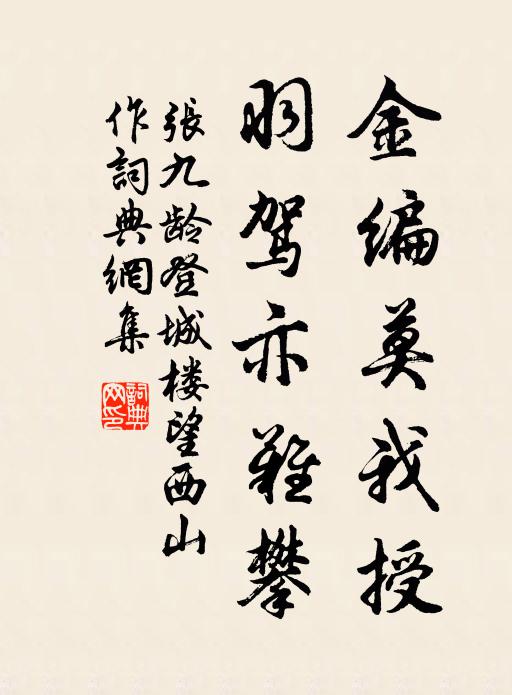 金编莫我授
羽驾亦難攀
張九龄登城楼望西山
作詞典網集
詞典
网印